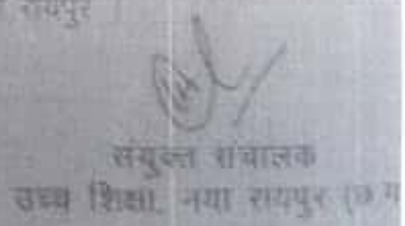 रायपुर
संयुक्त संचालक
उच्च शिक्षा, नया रायपुर (छ.ग